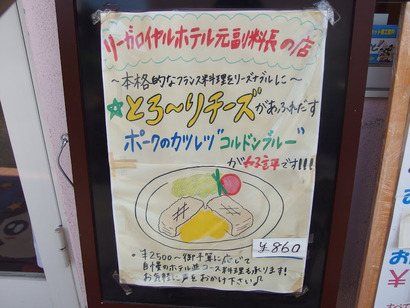 リーガロイヤルホテル元副料長の店
～本格的なフランス料理をリーズナブルに～
☆とろ～りチーズがあふれだす
ポークのカツレツ"コルドンブルー"
が好評です!!!
¥860
・¥2500～御予算に応じて
自慢のホテル並コース料理も承ります!
お気軽に声をおかけ下さい♫